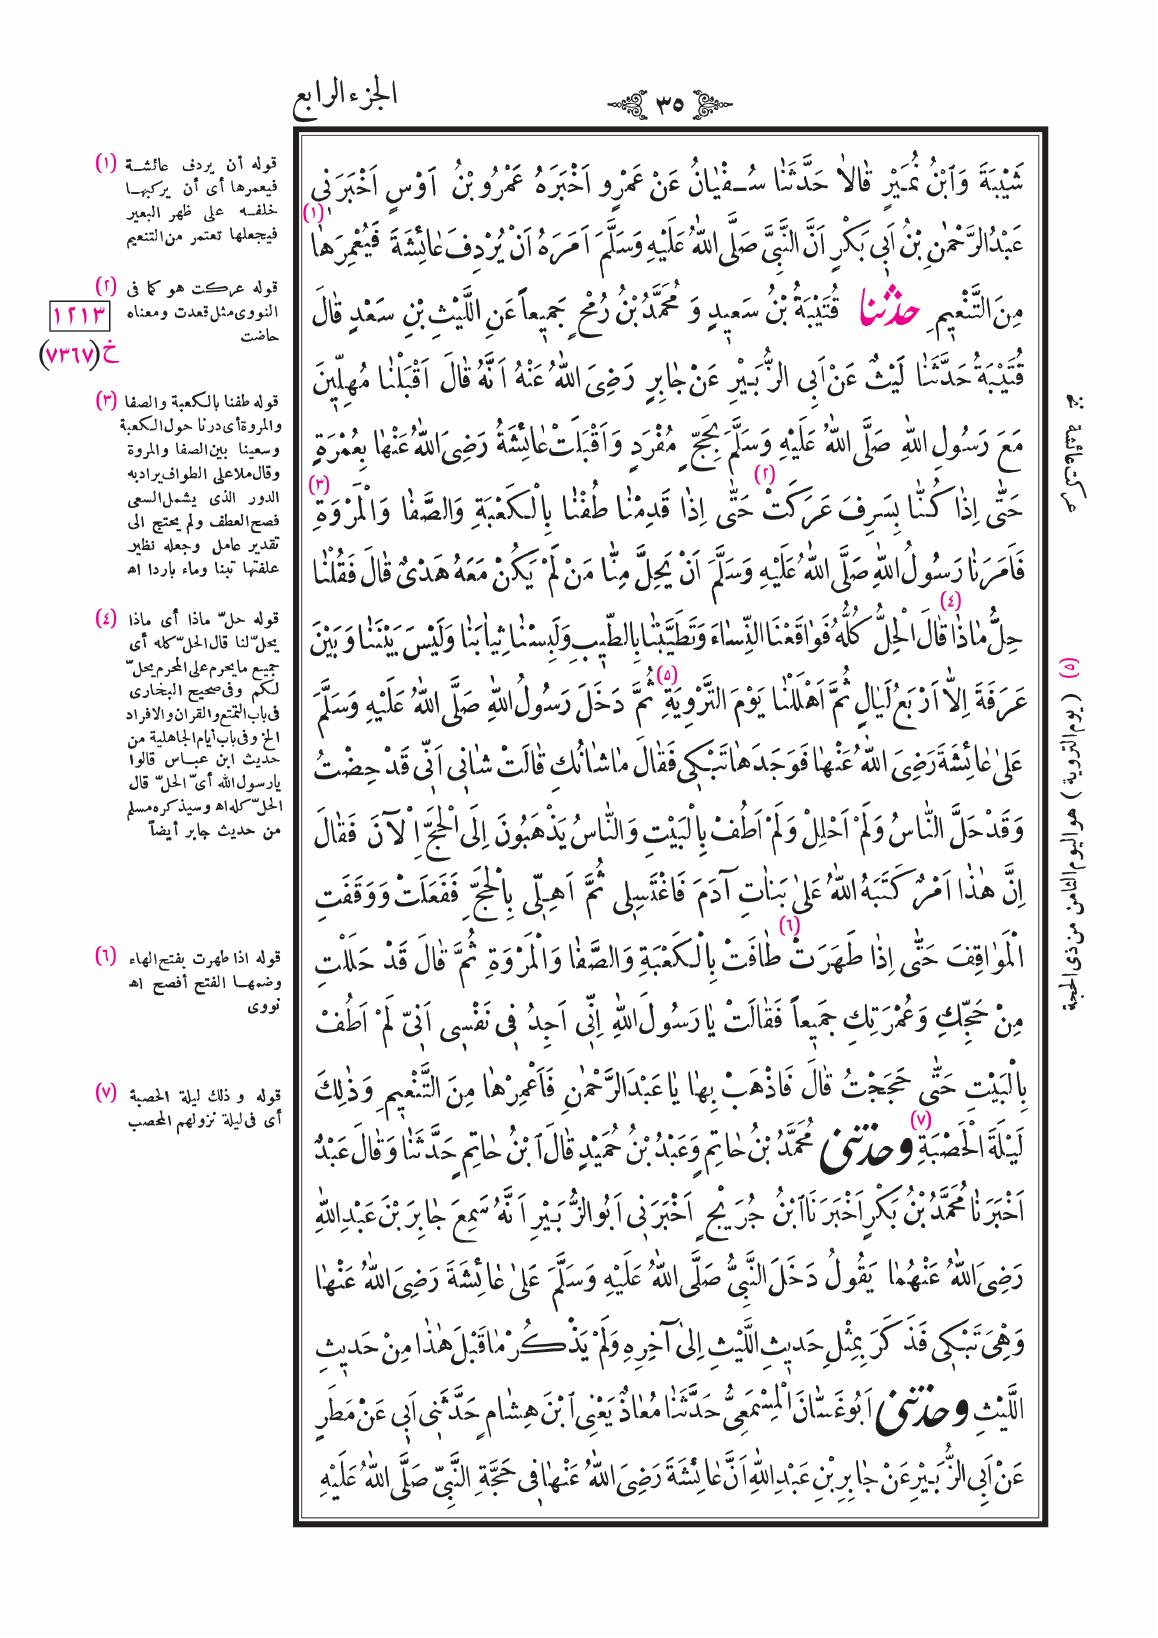 الجزء الرابع
٣٥
شَيْبَةَ وَابْنُ نُمَيْرٍ قَالَا حَدَّثَنَا سُفْيَانُ عَنْ عَمْرٍو اَخْبَرَهُ عَمْرُو بْنُ اَوْسٍ اَخْبَرَنِي
عَبْدُ الرَّحْمٰنِ بْنُ اَبِي بَكْرٍ اَنَّ النَّبِيَّ صَلَّى اللّٰهُ عَلَيْهِ وَسَلَّمَ اَمَرَهُ اَنْ يُرْدِفَ عَائِشَةَ فَيُعْمِرَهَا (١)
مِنَ التَّنْعِيمِ حدثنا قُتَيْبَةُ بْنُ سَعِيدٍ وَ مُحَمَّدُ بْنُ رُمْحٍ جَمِيعاً عَنِ اللَّيْثِ بْنِ سَعْدٍ قَالَ
قُتَيْبَةُ حَدَّثَنَا لَيْثٌ عَنْ اَبِي الزُّبَيْرِ عَنْ جَابِرٍ رَضِيَ اللّٰهُ عَنْهُ اَنَّهُ قَالَ اَقْبَلْنَا مُهِلِّينَ
مَعَ رَسُولِ اللّٰهِ صَلَّى اللّٰهُ عَلَيْهِ وَسَلَّمَ بِحَجٍّ مُفْرَدٍ وَاَقْبَلَتْ عَائِشَةُ رَضِيَ اللّٰهُ عَنْهَا بِعُمْرَةٍ
حَتّٰى اِذَا كُنَّا بِسَرِفَ عَرَكَتْ (٢) حَتّٰى اِذَا قَدِمْنَا طُفْنَا بِالْكَعْبَةِ وَالصَّفَا وَالْمَرْوَةِ (٣)
فَاَمَرَنَا رَسُولُ اللّٰهِ صَلَّى اللّٰهُ عَلَيْهِ وَسَلَّمَ اَنْ يَحِلَّ مِنَّا مَنْ لَمْ يَكُنْ مَعَهُ هَدْىٌ قَالَ فَقُلْنَا
حِلُّ مَاذَا (٤) قَالَ الْحِلُّ كُلُّهُ فَوَاقَعْنَا النِّسَاءَ وَتَطَيَّبْنَا بِالطِّيبِ وَلَبِسْنَا ثِيَابَنَا وَلَيْسَ بَيْنَنَا وَبَيْنَ
عَرَفَةَ اِلَّا اَرْبَعُ لَيَالٍ ثُمَّ اَهْلَلْنَا يَوْمَ التَّرْوِيَةِ (٥) ثُمَّ دَخَلَ رَسُولُ اللّٰهِ صَلَّى اللّٰهُ عَلَيْهِ وَسَلَّمَ
عَلٰى عَائِشَةَ رَضِيَ اللّٰهُ عَنْهَا فَوَجَدَهَا تَبْكِي فَقَالَ مَا شَانُكِ قَالَتْ شَانِي اَنِّي قَدْ حِضْتُ
وَقَدْ حَلَّ النَّاسُ وَلَمْ اَحْلِلْ وَلَمْ اَطُفْ بِالْبَيْتِ وَالنَّاسُ يَذْهَبُونَ اِلَى الْحَجِّ اِلْآنَ فَقَالَ
اِنَّ هٰذَا اَمْرٌ كَتَبَهُ اللّٰهُ عَلٰى بَنَاتِ آدَمَ فَاغْتَسِلِي ثُمَّ اَهِلِّي بِالْحَجِّ فَفَعَلَتْ وَوَقَفَتِ
الْمَوَاقِفَ حَتّٰى اِذَا طَهَرَتْ (٦) طَافَتْ بِالْكَعْبَةِ وَالصَّفَا وَالْمَرْوَةِ ثُمَّ قَالَ قَدْ حَلَلْتِ
مِنْ حَجِّكِ وَعُمْرَتِكِ جَمِيعاً فَقَالَتْ يَا رَسُولَ اللّٰهِ اِنِّي اَجِدُ فِي نَفْسِي اَنِّي لَمْ اَطُفْ
بِالْبَيْتِ حَتّٰى حَجَجْتُ قَالَ فَاذْهَبْ بِهَا يَا عَبْدَ الرَّحْمٰنِ فَاَعْمِرْهَا مِنَ التَّنْعِيمِ وَذٰلِكَ
لَيْلَةَ الْحَصْبَةِ (٧) وحدثني مُحَمَّدُ بْنُ حَاتِمٍ وَعَبْدُ بْنُ حُمَيْدٍ قَالَ ابْنُ حَاتِمٍ حَدَّثَنَا وَقَالَ عَبْدٌ
اَخْبَرَنَا مُحَمَّدُ بْنُ بَكْرٍ اَخْبَرَنَا ابْنُ جُرَيْجٍ اَخْبَرَنِي اَبُو الزُّبَيْرِ اَنَّهُ سَمِعَ جَابِرَ بْنَ عَبْدِ اللّٰهِ
رَضِيَ اللّٰهُ عَنْهُمَا يَقُولُ دَخَلَ النَّبِيُّ صَلَّى اللّٰهُ عَلَيْهِ وَسَلَّمَ عَلٰى عَائِشَةَ رَضِيَ اللّٰهُ عَنْهَا
وَهِيَ تَبْكِي فَذَكَرَ بِمِثْلِ حَدِيثِ اللَّيْثِ اِلٰى آخِرِهِ وَلَمْ يَذْكُرْ مَا قَبْلَ هٰذَا مِنْ حَدِيثِ
اللَّيْثِ وحدثني اَبُو غَسَّانَ الْمِسْمَعِيُّ حَدَّثَنَا مُعَاذٌ يَعْنِي ابْنَ هِشَامٍ حَدَّثَنِي اَبِي عَنْ مَطَرٍ
عَنْ اَبِي الزُّبَيْرِ عَنْ جَابِرِ بْنِ عَبْدِ اللّٰهِ اَنَّ عَائِشَةَ رَضِيَ اللّٰهُ عَنْهَا فِي حَجَّةِ النَّبِيِّ صَلَّى اللّٰهُ عَلَيْهِ
(١) قوله أن يردف عائشة
فيعمرها أى أن يركبها
خلفه على ظهر البعير
فيجعلها تعتمر من التنعيم
(٢) قوله عركت هو كما فى
النووى مثل قعدت ومعناه
حاضت
١٢١٣
خ (٧٣٦٧)
(٣) قوله طفنا بالكعبة والصفا
والمروة أى درنا حول الكعبة
وسعينا بين الصفا والمروة
وقال ملا على الطواف يراد به
الدور الذى يشمل السعى
فصح العطف ولم يحتج الى
تقدير عامل وجعله نظير
علفتها تبنا وماء باردا اه
(٤) قوله حلّ ماذا أى ماذا
يحلّ لنا قال الحلّ كله أى
جميع ما يحرم على المحرم يحلّ
لكم وفى صحيح البخارى
فى باب التمتع والقران والافراد
الخ وفى باب أيام الجاهلية من
حديث ابن عباس قالوا
يا رسول الله أىّ الحلّ قال
الحلّ كله اه وسيذكره مسلم
من حديث جابر أيضاً
(٦) قوله اذا طهرت بفتح الهاء
وضمها الفتح أفصح اه
نووى
(٧) قوله و ذلك ليلة الحصبة
أى فى ليلة نزولهم المحصب
عركت عائشة نخ
(٥) ( يوم التروية ) هو اليوم الثامن من ذى الحجة